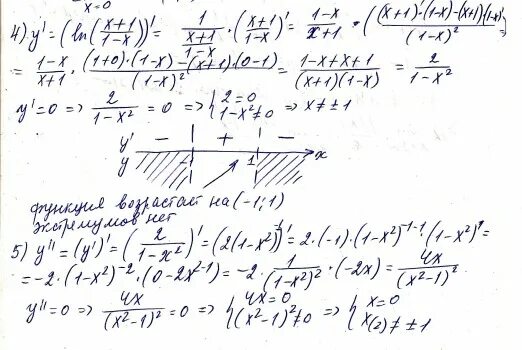 x=0
4) y' = (ln(x+1/1-x))' = 1/(x+1/1-x) · (x+1/1-x)' = 1-x/x+1 · ((x+1)'(1-x)-(x+1)(1-x)'/(1-x)²)
= 1-x/x+1 · (1+0)·(1-x)-(x+1)(0-1)/(1-x)² = 1-x+x+1/(x+1)(1-x) = 2/1-x²
y'=0 => 2/1-x² = 0 => { 2=0 1-x²≠0 => x≠±1
y' - + -
y -1 1 x
функция возрастает на (-1;1)
экстремумов нет
5) y'' = (y')' = (2/1-x²)' = (2(1-x²)⁻¹)' = 2·(-1)·(1-x²)⁻¹⁻¹·(1-x²)' =
= -2·(1-x²)⁻²·(0-2x²⁻¹) = -2·1/(1-x²)²·(-2x) = 4x/(x²-1)²
y''=0 => 4x/(x²-1)² = 0 => { 4x=0 (x²-1)²≠0 => { x=0 x(2)≠±1